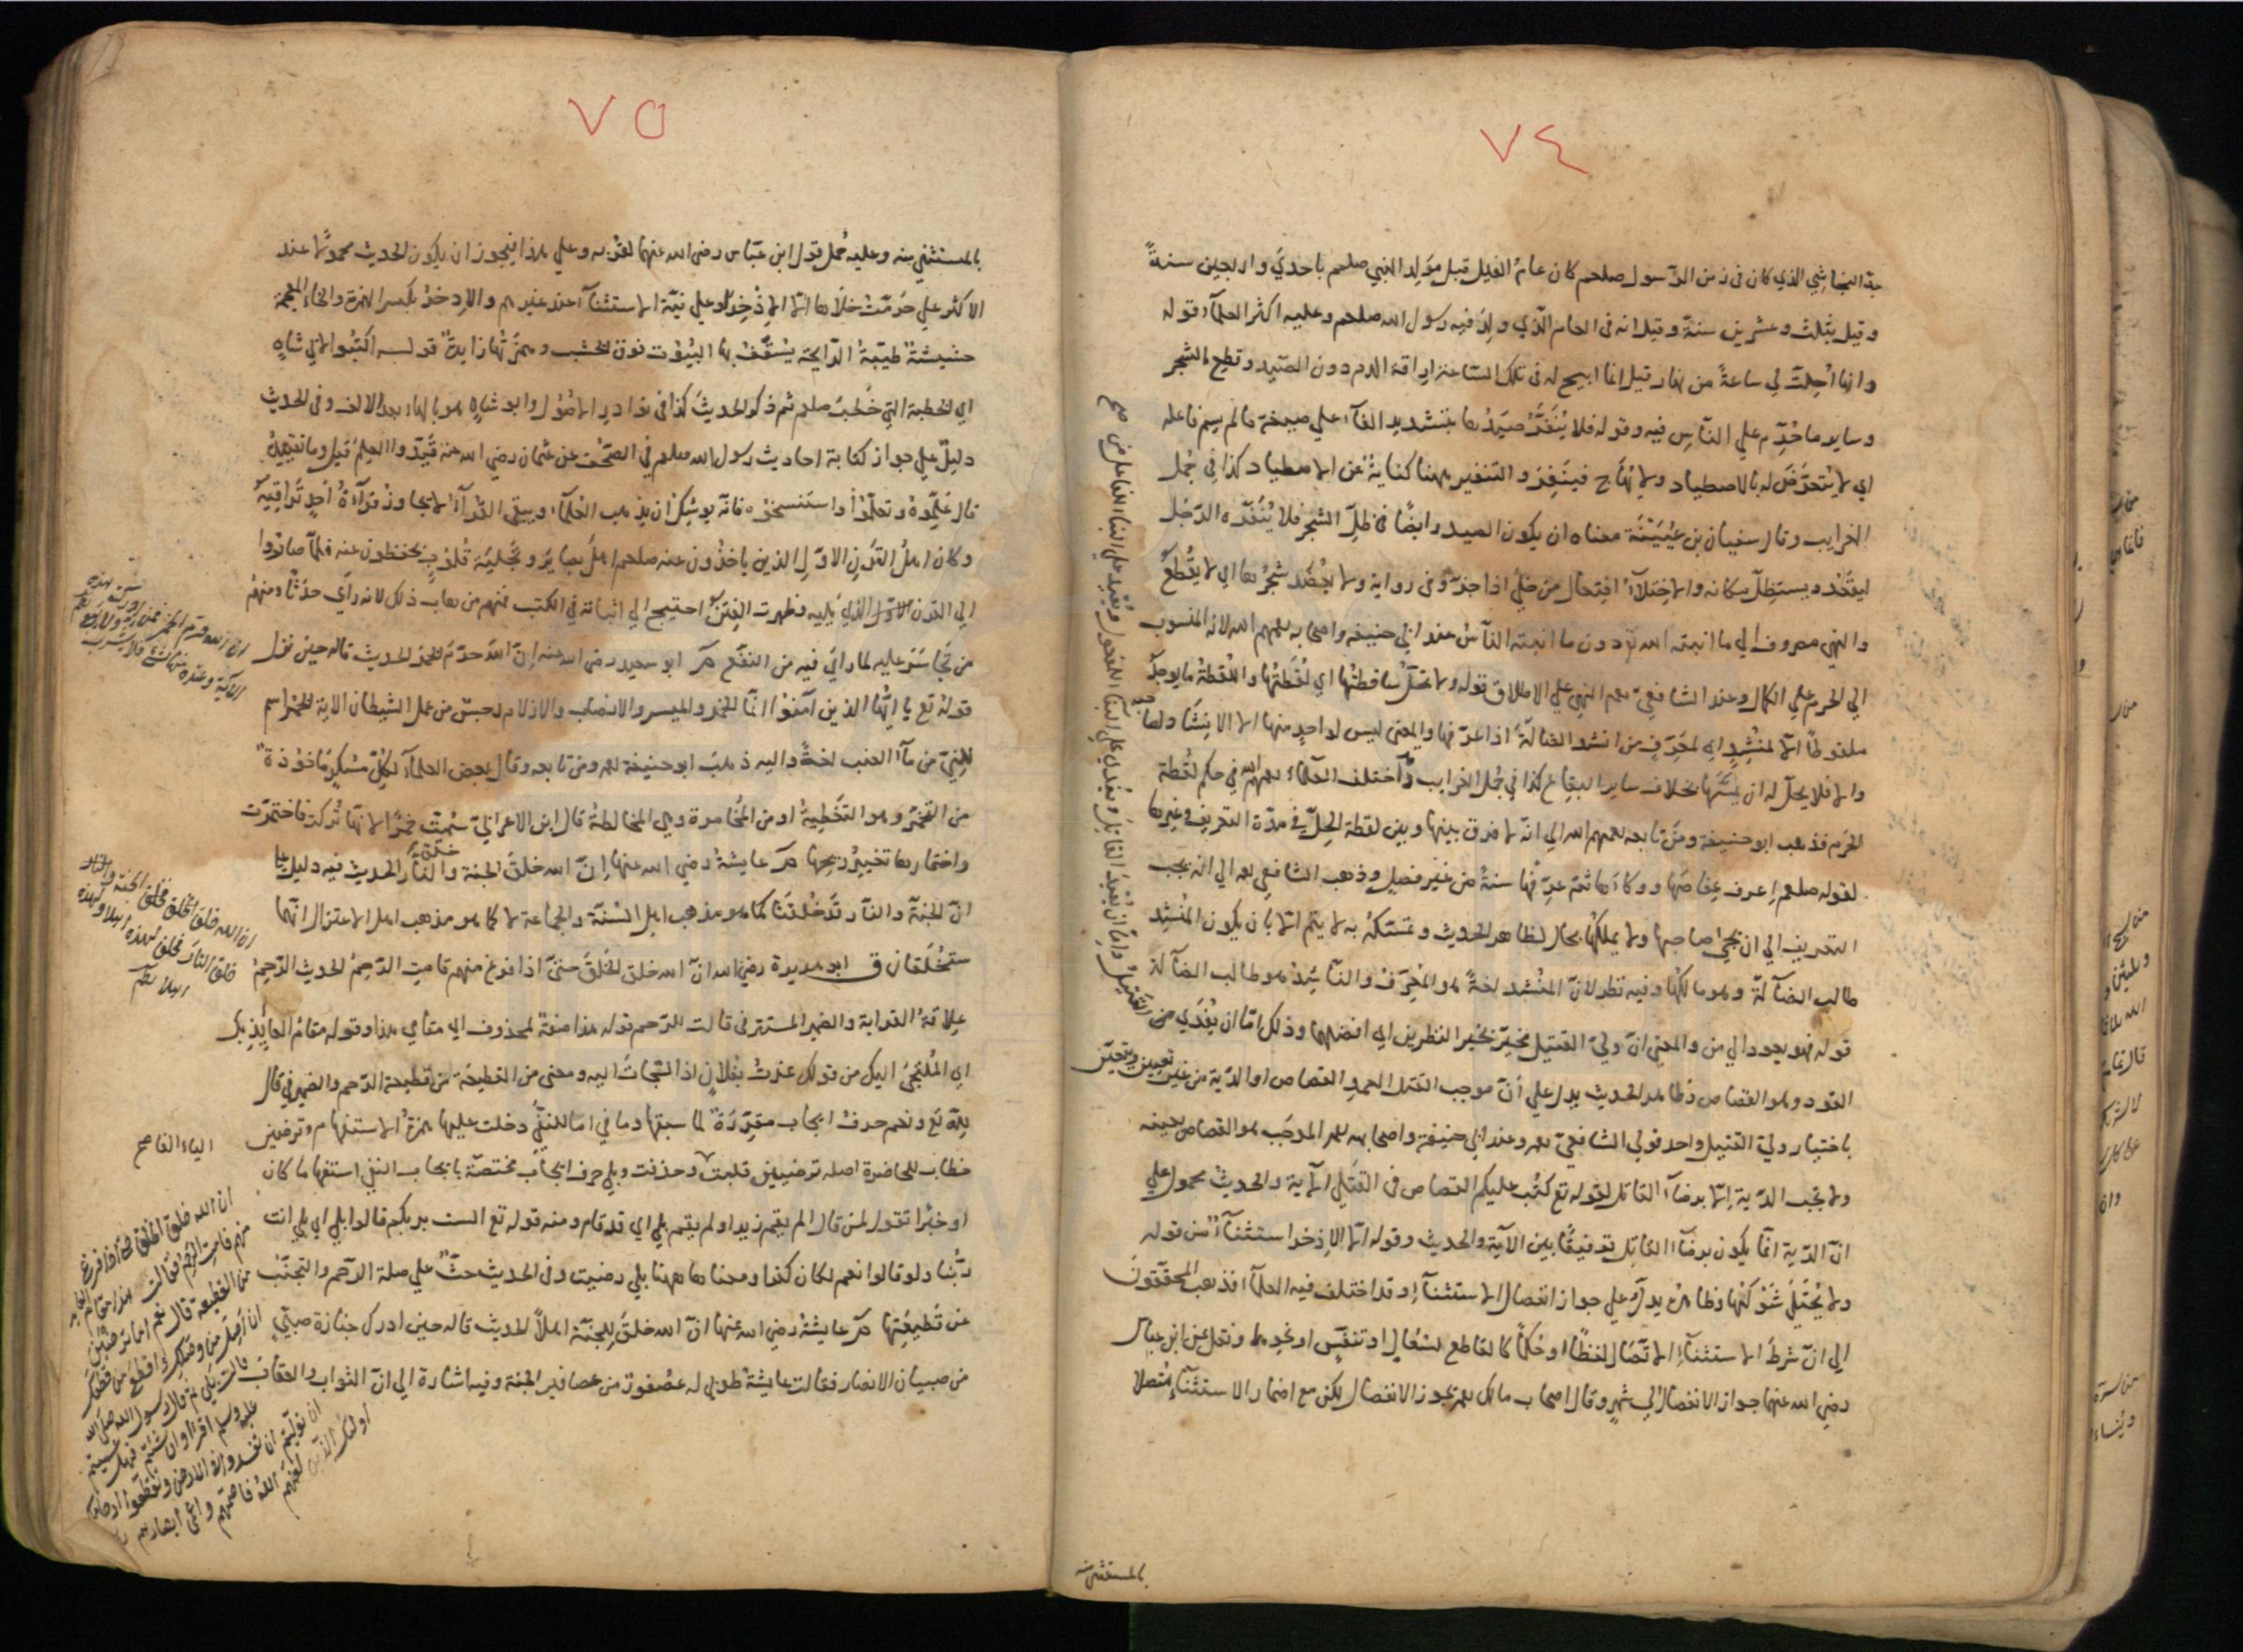 ٧٤
جد النجاشي الذي كان في زمن الرسول صلعم كان عام الفيل قبل مولد النبي صلعم باحدي واربعين سنةً
وقيل بثلث وعشرين سنة وقيل انه في العام الذي ولد فيه رسول الله صلعم وعليه اكثر العلمآء قوله
وانها اُحِلت لي ساعةً من نهار قيل انما ابيح له في تلك الساعة اراقة الدم دون الصيد وقطع الشجر
وساير ما حُرِّم علي الناس فيه وقوله فلا يُنَفَّرُ صيدُها بتشديد الفآء علي صيغة ما لم يسم فاعله
اي لا يُتعرَّض له بالاصطياد ولا يُهَاج فينفِر والتنفير ههنا كناية عن الاصطياد كذا في جُمل
الغرايب وقال سفيان بن عُيَيْنَة معناه ان يكون الصيد رابضًا في ظلّ الشجر فلا يُنَفّره الرّجُل
ليقعُد ويستظِلّ مكانه والاختلآء افتعال من خلي اذا جزّ وفي رواية ولا يعضد شجرها اي لا يقطع
والنهي مصروف الي ما انبته الله تع دون ما انبته الناس عند ابي حنيفه واصحابه رحمهم الله لانه المنسوب
الي الحرم علي الكمال وعند الشافعي رحه النهي علي الاطلاق قوله ولا تحلّ ساقطتُها اي لُقَطَتُها واللقطة ما يوجد
ملقوطًا الّا لمنشِدٍ اي لمعَرّفٍ من انشد الضالّة اذا عرّفها والمعنى ليس لواحدٍ منها الا الانشاد
والا فلا يحلّ له ان يمسّها بخلاف ساير البقاع كذا في جُمل الغرايب واختلف العلمآء رحمهم الله في حكم لُقطة
الحَرَم فذهب ابو حنيفة ومن تابعه رحمهم الله الي انّه لا فرق بينها وبين لقطة الحِلّ في مدّة التعريف وغيرها
لقوله صلعم اِعرف عِفاصَها ووكآءها ثم عرِّفها سنةً من غير فصلٍ وذهب الشافعي رحه الي انه يجب
التعريف الي ان يجئ صاحبها ولا يملكُها بحال لظاهر الحديث وتمسّكُه به لا يتم الّا بان يكون المُنشِد
طالب الضآلة وهو مالكُها وفيه نظر لانّ المنُشد لغةً هو المُعَرِّف والنآشِدُ هو طالب الضآلة
قوله فهو يعود الي من والمعنى انّ وليّ القتيل مخيّرٌ بخَير النظرين اي افضلِهما وذلك امّا ان يُفدي من القتيل
القود وهو القصاص فظاهر الحديث يدل علي أنّ موجب القتل العمد القصاص او الدّية من غير تعيين ويتعيّن
باختيار وليّ القتيل واحد قولي الشافعيّ رحه وعند ابي حنيفة واصحابه رحهم الموجَب هو القصاص بعينه
ولا تجب الدّية اِلّا برضآء القاتل لقوله تع كتب عليكم القصاص في القتلي الآية والحديث محمول علي
انّ الدّية انّما يكون برضآء القاتل توفيقًا بين الآية والحديث وقوله الّا الاِذخر استثنآءٌ من قوله
ولا يُختَلَي شَوْكُها وظاهره يدلّ علي جواز انفصال الاستثنآءِ وقد اختلف فيه العلمآء فذهب المحققون
الي انّ شرطَ الاستثنآء الاتصال لفظًا او حُكمًا كالقاطع لسُعَالٍ او تنفّسٍ او نحوهما ونقل عن ابن عباس
رضي الله عنهما جواز الانفصال الي شهر وقال اصحاب مالك رحهم يجوز الانفصال لكن مع اضمار الاستثنآء مُتصلا
بالمستثنى منه
٧٥
بالمستثني منه وعليه حُمل قول ابن عبّاس رضى الله عنهما لقُربه وعلي هذا فيجوز ان يكون الحديث محمولًا عند
الاكثر علي حُرمَت خلاها الّا الاِذْخِر وعلي نيّة الاستثنآء عند غيرهم والاِدخرُ بكسر الهمزة والخاء المعجمة
حشيشةٌ طيّبةُ الرّايحة يُسَقّفُ بها البيُوْت فوق الخشب وهمزتُها زايدةٌ قولــه اكتبُوا لابي شاهٍ
اي الخطبة التي خُطب صلعم ثم ذكر الحديث كذا في نوادر الاصُول وابو شاهٍ هو بالهاء بعد الالف وفي الحديث
دليل علي جواز كتابة احاديث رسول الله صلعم في الصّحُف عن عثمان رضي الله عنه قيّدوا العلم قيل وما تقييدُه
قال عَلِّموهُ وتعلّمُوْا واستنسخوْه فانّه يوشِكُ ان يذهب العُلمآء ويبقى القُرّآءُ لا يجاوِزُ قِرآءةُ اَحدٍ تَرَاقِيَهُ
وكان اهلُ القَرْنِ الاوّلِ الذين ياخذُون عنه صلعم اهلَ بصايرَ وتجليَة قُلوبٍ يحفظون عنه فلمّا صاروا
الي القرن الاوّل الذي يليه وظهرت الفِتَنُ احتيج الي اثباته في الكتب فمنهم من هاب ذلك لانه راَي حدَثًا ومنهم
من تجاسَرَ عليه لما راي فيه من النفْعِ مر ابو سعيد رضي الله عنه إنّ اللهَ حرّمَ الخمرَ الحديث قاله حين نزل
قولُهُ تع يا ايّها الذين آمنُوْا انّما الخمر والميسر والانصاب والازلام رجسٌ من عمل الشيطان الاية الخمر اسم
للنيِّ من مآء العنب لغةً واليه ذهبَ ابو حنيفة رحه ومن تابعه وقال بعض العلمآء لكُلّ مُسكِرٍ مأخُوْذةٌ
من التخمّر وهو التغطيةُ او من المُخامرة وهي المخالطةُ قال ابن الاعرابيّ سُمّيت خمرًا لانّها تُركت فاختمرَت
واختمارها تغيّرُ ريحِها مر عايشةُ رضي الله عنها إنّ الله خلقَ الجنة والنّارَ الحديث فيه دليل علي
انّ الجنّة والنّار قد خُلقتا كما هو مذهب اهل السُنّة والجماعة لا كما هو مذهب اهل الاعتزال انّهما
ستُخلَقان ق ابو هريرة رضي الله انّ الله خلق الخَلْقَ حتىّ اذا فرغ منهم قامت الرّحِمُ الحديث الرّحِمُ
عِلاقةُ القرابة والضمير المستتر في قالت للرّحم قوله هذا صفةٌ لمحذوف اي مقامي هذا وقوله مقامُ العايِذِ بكَ
اي المُلتَجِئِ اليك من قولك عُذْتُ بفُلانٍ اذا التجأتُ اليه ومعني من القطيعة من قطيعة الرّحم والضمير في قال
لِلّه تع ونعم حرفُ ايجاب مقرّرةٌ لما سبقها وما في اما للنفي دخلت عليها همزةُ الاستفهام وترضين
خطاب للحاضرة اصله ترضيين قلبت وحذفت وبلي حرف ايجاب مختصّة بايجاب النفي استفهاما كان
او خبرًا تقول لمن قال الم يقم زيد او لم يقم بلي اي قد قام ومنه قوله تع الست بربكم قالوا بلي اي بلي انت
ربُّنا ولو قالوا نعم لكان كفرا ومعناها ههنا بلي رضيت وفي الحديث حثٌّ علي صلة الرّحم والتجنّب
عن قَطيعتِها مر عايشةُ رضي الله عنها انّ الله خلقَ لِلجَنّة اهلاً الحديث قاله حين ادرك جنازة صبيّ
من صبيان الانصار فقالت عايشةُ طُوبي له عُصْفورٌ من عصافير الجنة وفيه اشارة الي انّ الثواب والعقاب
ان الله خلق الخلق فخلق الجنة والنار
خلق النار فخلق لهذه اهلا ولهذه
اهلا
الياء الفا صح
ان الله خلق الخلق حتى اذا فرغ
منهم قامت الرحم فقالت هذا مقام العايذ
من القطيعة قال نعم اما ترضين
ان اصل من وصلك واقطع من قطعك
قالت بلي ثم قال رسول الله صلى الله
عليه وسلم اقرأوا ان شئتم فهل عسيتم
ان توليتم ان تفسدوا في الارض وتقطعوا ارحامكم
اولئك الذين لعنهم الله فاصمهم واعمى ابصارهم